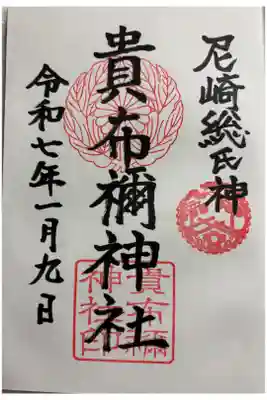 尼崎総氏神
貴布禰神社
貴布禰
神社印
令和七年一月九日